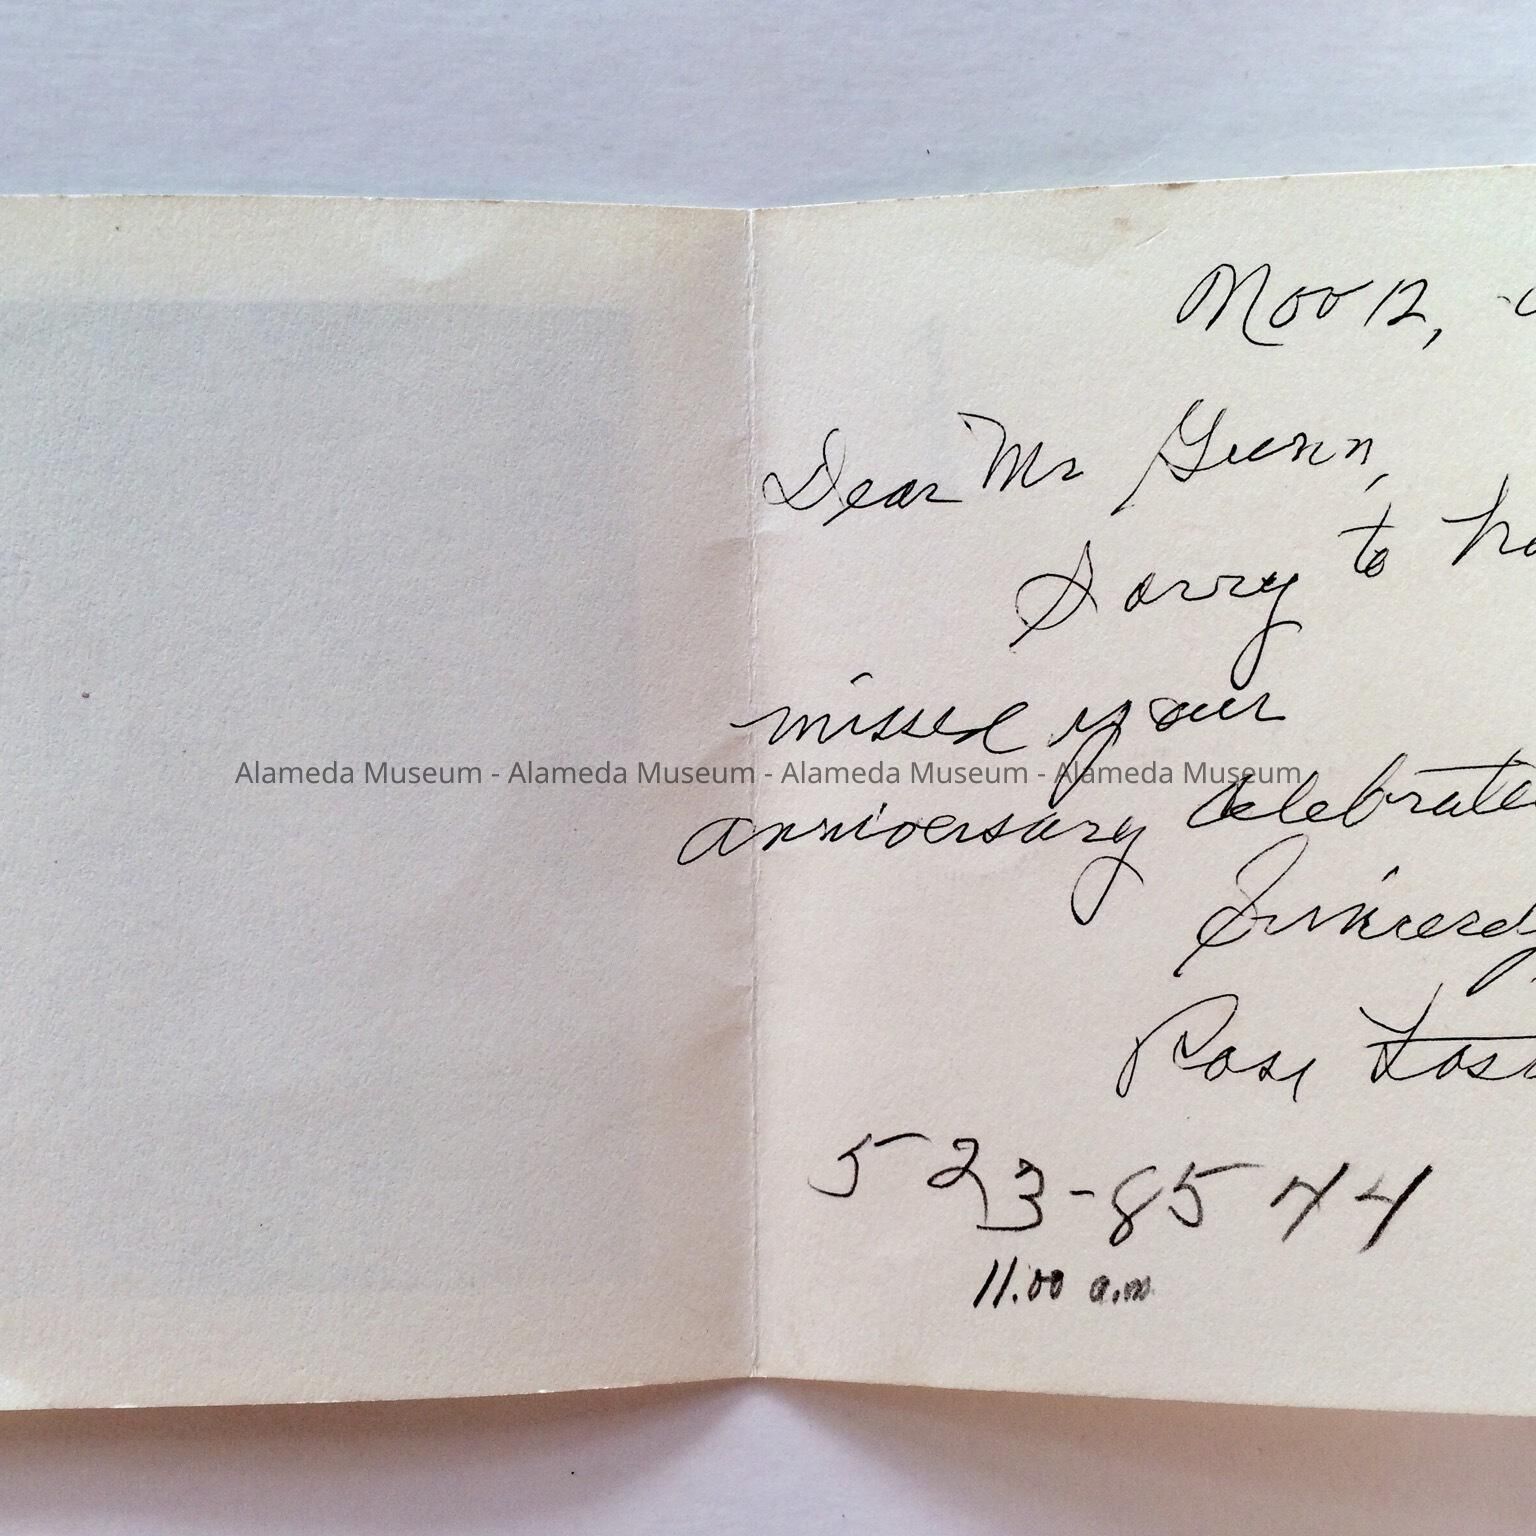 Nov 12,
Dear Mr Gunn,
Sorry to
missed your
Alameda Museum - Alameda Museum - Alameda Museum - Alameda Museum
anniversary
Sincerely
Rose
523-8544
11.00 a.m.